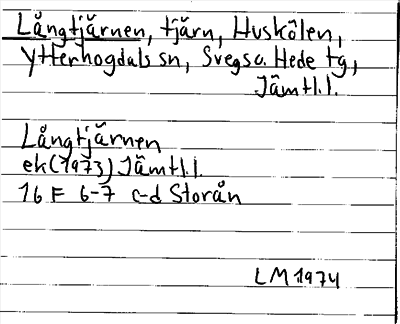 Långtjärnen, tjärn, Huskölen,
Ytterhogdals sn, Svegs o. Hede tg,
Jämtl.l.
Långtjärnen
ek (1973) Jämtl.l.
16 F 6-7 c-d Storån
LM 1974